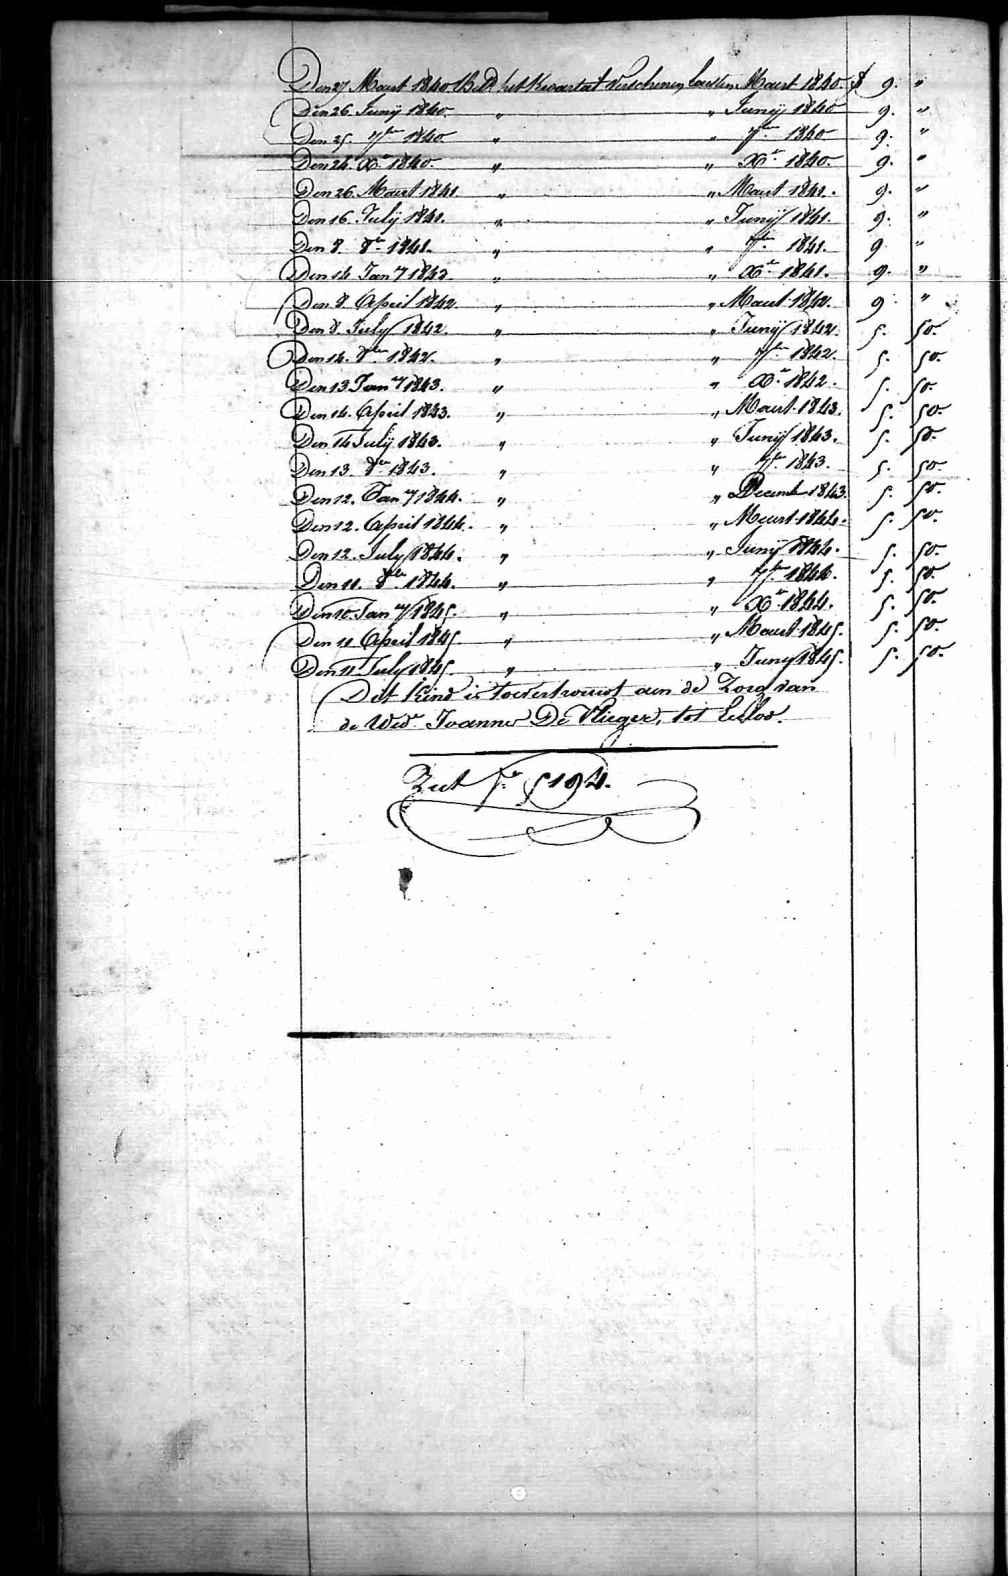 Den 27 Maart 1840 Betd. het kwartaal verschenen laatsten Maart 1840 f 9. "
Den 26 Junij 1840 " " Junij 1840 9. "
Den 25. 7br 1840 " " 7br 1840 9. "
Den 24 Xr 1840. " " Xr 1840. 9. "
Den 26 Maart 1841 " " Maart 1841. 9. "
Den 16 Julij 1841. " " Junij 1841. 9. "
Den 8. 8br 1841. " " 7br 1841. 9. "
Den 14 Jany 1842 " " Xr 1841. 9. "
Den 8 April 1842 " " Maart 1842. 9. "
Den 8. July 1842. " " Junij 1842. 5. 50.
Den 14. 8br 1842. " " 7br 1842. 5. 50.
Den 13 Jany 1843. " " Xr 1842. 5. 50.
Den 14. April 1843. " " Maart 1843. 5. 50.
Den 14 Julij 1843. " " Junij 1843. 5. 50.
Den 13. 8br 1843. " " 7br 1843. 5. 50.
Den 12. Jany 1844. " " Decemb. 1843. 5. 50.
Den 12. April 1844. " " Maart 1844. 5. 50.
Den 12. July 1844. " " Junij 1844. 5. 50.
Den 11. 8br 1844. " " 7br 1844. 5. 50.
Den 10. Jany 1845. " " Xr 1844. 5. 50.
Den 11 April 1845 " " Maart 1845. 5. 50.
Den 11 July 1845. " " Juny 1845. 5. 50.
Dit kind is toevertrouwt aen de Zorg van
de Wede Joannes De Vlieger, tot Eecloo.
Ziet fo. 5194.